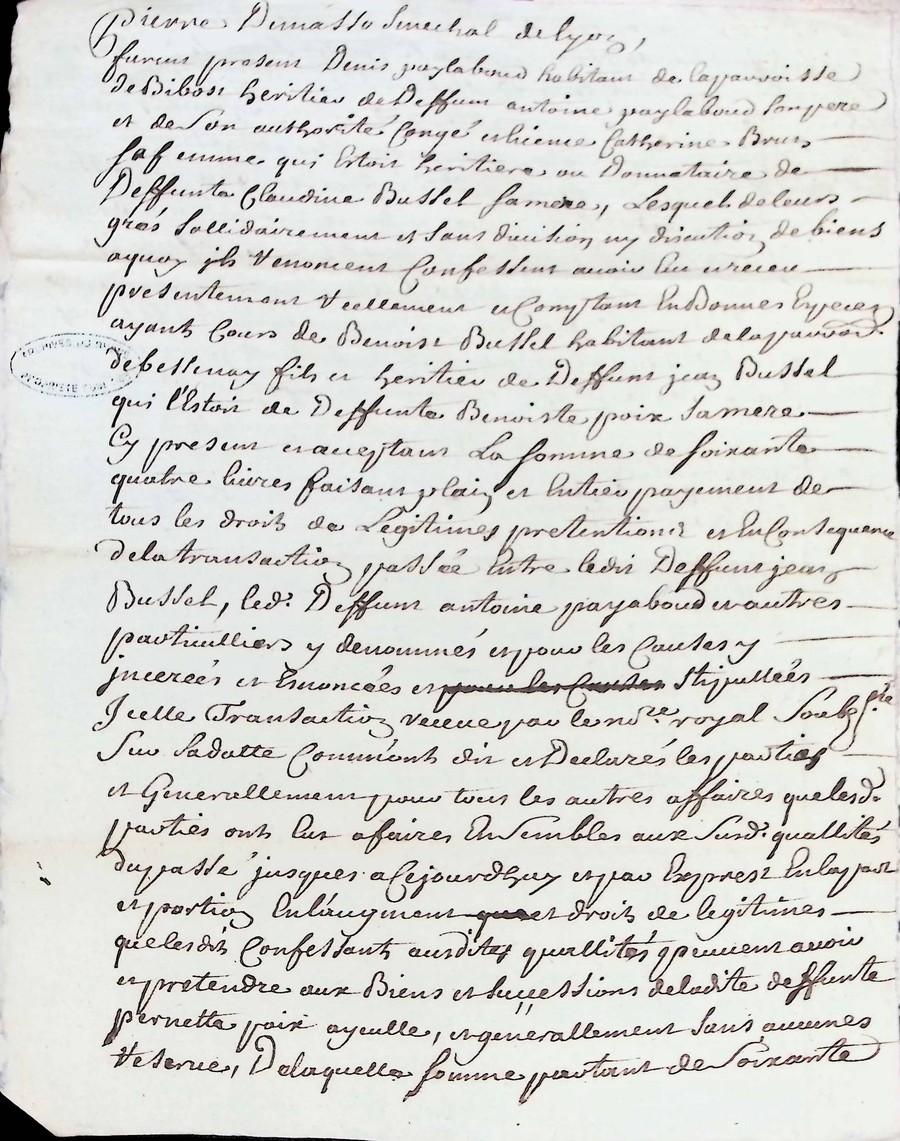 Pierre Dumasso Senechal de lyon,
furent present Denis paylaboud habitant de laparroisse
de Bibost heritier de Deffunt antoine paylaboud son pere
et de Son authorité Congé et licence Catherine Brun
sa femme qui Estoit heritiere ou Donnataire de
Deffunte Claudine Bussel samere, Lesquels deleurs
grés Sollidairement et Sans division ny discution de biens
aquoy jls Renoncent Confessent avoir Eu et receu
presentement Reellement et Comptant En Bonnes Especes
ayants Cours de Benoist Bussel habitant de laparroisse
de bessenay fils et heritier de Deffunt jean Bussel
qui l'Estoit de Deffunte Benoiste poix samere
Cy present et acceptant La somme de soixante
quatre livres faisant plain et Entier payement de
tous les droits de Legitimes pretentions et En Consequence
de la transaction passée Entre ledit Deffunt jean
Bussel, led. Deffunt antoine payaboud et autres
particulliers y denommés et pour les Causes y
jncerées et Enoncées et pour les Causes Stipullées
Jcelle Transaction receue par le nore royal Soubsné
Sur Sa datte Comm'ont dit et Declarés les parties
et Generallement pour tous les autres affaires que lesd.
parties onts Eut affaires Ensembles aux susd. quallités
du passé jusques a Cejourdhuy et par Exprest En la part
et portion En l'augment que et droits de legitimes
que lesdits Confessants ausdites quallités peuvent avoir
et pretendre aux Biens et successions de ladite deffunte
pernette poix ayeulle, et generallement sans aucunes
Reserve, De laquelle somme partant de Soixante
ARCHIVES DU RHONE
PROPRIETE PUBLIQUE